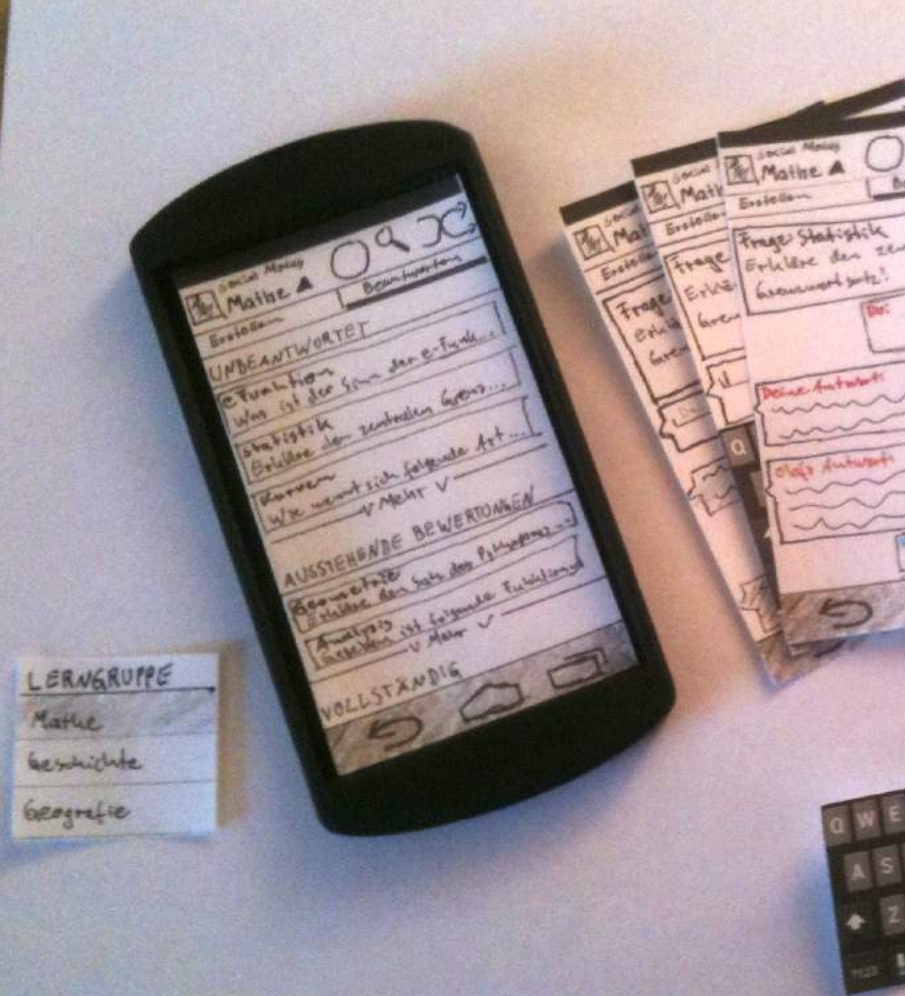 Social Modus
Mathe ▲
Erstellen
Beantworten
UNBEANTWORTET
e Funktion
Was ist der Sinn der e-Funk...
Statistik
Erkläre den zentralen Grenz...
Kurven
Wie nennt sich folgende Art...
V Mehr V
AUSSTEHENDE BEWERTUNGEN
Geometrie
Erkläre den Satz des Pythagoras...
Analysis
Gegeben ist folgende Funktion
V Mehr V
VOLLSTÄNDIG
LERNGRUPPE
Mathe
Geschichte
Geografie
Social
Mat
Erstelle
Frage
Erklä
Gren
Social
Math
Erstellen
Frage
Erklä
Gren
Q
Social Modus
Mathe ▲
Erstellen
Be
Frage: Statistik
Erkläre den zen
Grenzwertsatz!
Du:
Deine Antwort:
Olafs Antwort:
Q W E
A S
Z
?123